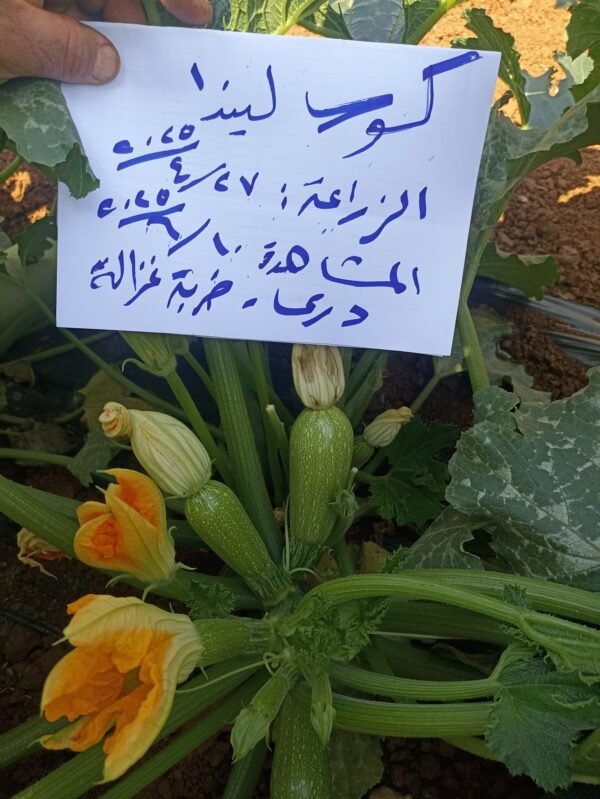 كوب ليندا
الزراعة: ٢٧/٤/٢٠٢٥
المشاهدة ١٠/٦/٢٠٢٥
درعا - خربة غزالة